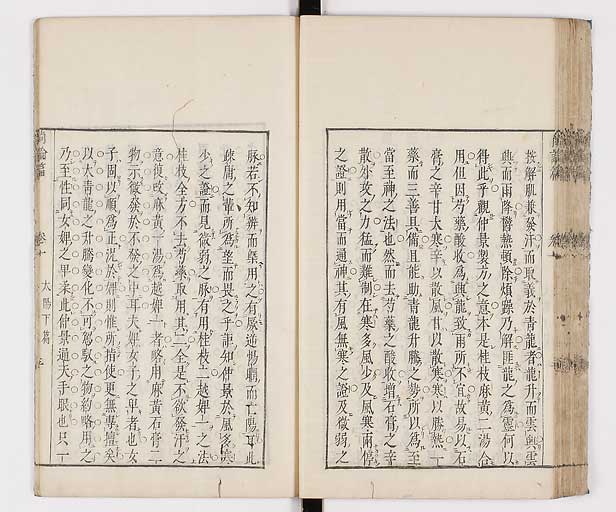 按解肌兼發汗而取義於青龍者龍升而雲興雲
興而雨降鬱熱頓除煩躁乃解匪龍之為靈何以
得此乎觀仲景製方之意本是桂枝麻黃二湯合
用但因芍藥酸收為興龍致雨所不宜故易以石
膏之辛甘大寒辛以散風甘以散寒寒以勝熱一
藥而三善具備且能助青龍升騰之勢所以為至
當至神之法也然而去芍藥之酸收增石膏之辛
散外攻之力猛而難制在寒多風少及風寒兩停
之證則用當而通神其有風無寒之證及微弱之
脉若不知辨而槩用之有厥逆惕瞤而亡陽耳此
疎庸之輩所為望而畏之乎詎知仲景於風多寒
少之證而見微弱之脉有用桂枝二越婢一之法
桂枝全方不去芍藥取用其二全是不欲發汗之
意復改麻黃一湯為越婢一者略用麻黃石膏二
物示微發於不發之中耳夫婢女子之卑者也女
子固以順為正況於婢則惟所指使更無專擅矣
以大青龍之升騰變化不可駕馭之物約略用之
乃至性同女婢之卑柔此仲景通天手眼也只一
尚論篇 卷一 太陽下篇 三